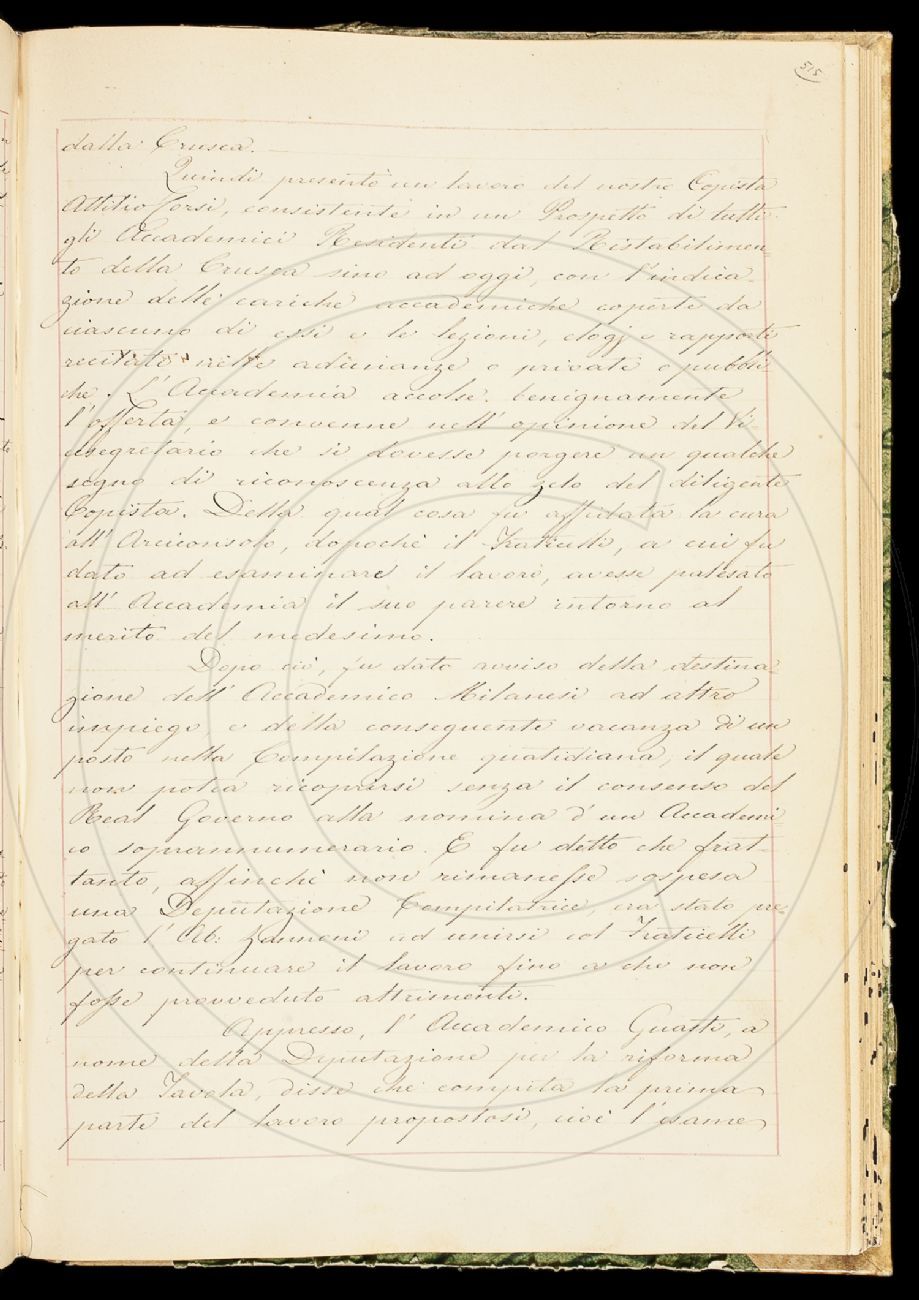 515
dalla Crusca.
Quindi presentò un lavoro del nostro Copista
Attilio Corsi, consistente in un Prospetto di tutti
gli Accademici Residenti dal Ristabilimen-
to della Crusca sino ad oggi, con l'indica-
zione delle cariche accademiche coperte da
ciascuno di essi e le lezioni, elogj e rapporti
recitati nelle adunanze o private o pubbli
che. L'Accademia accolse benignamente
l'offerta, e convenne nell'opinione del Vi-
cesegretario che si dovesse porgere un qualche
segno di riconoscenza allo zelo del diligente
Copista. Della qual cosa fu affidata la cura
all'Arciconsolo, dopochè il Fraticelli, a cui fu
dato ad esaminare il lavoro, avesse palesato
all'Accademia il suo parere intorno al
merito del medesimo.
Dopo ciò, fu dato avviso della destina-
zione dell'Accademico Milanesi ad altro
impiego, e della conseguente vacanza di un
posto nella Compilazione quotidiana, il quale
non potea ricoprirsi senza il consenso del
Real Governo alla nomina d'un Accademi
co soprannumerario. E fu detto che frat-
tanto, affinchè non rimanesse sospesa
una Deputazione Compilatrice, era stato pre-
gato l'Ab: Zannoni ad unirsi col Fraticelli
per continuare il lavoro fino a che non
fosse provveduto altrimenti.
Appresso, l'Accademico Guasti, a
nome della Deputazione per la riforma
della Tavola, disse che compita la prima
parte del lavoro propostosi, cioè l'esame